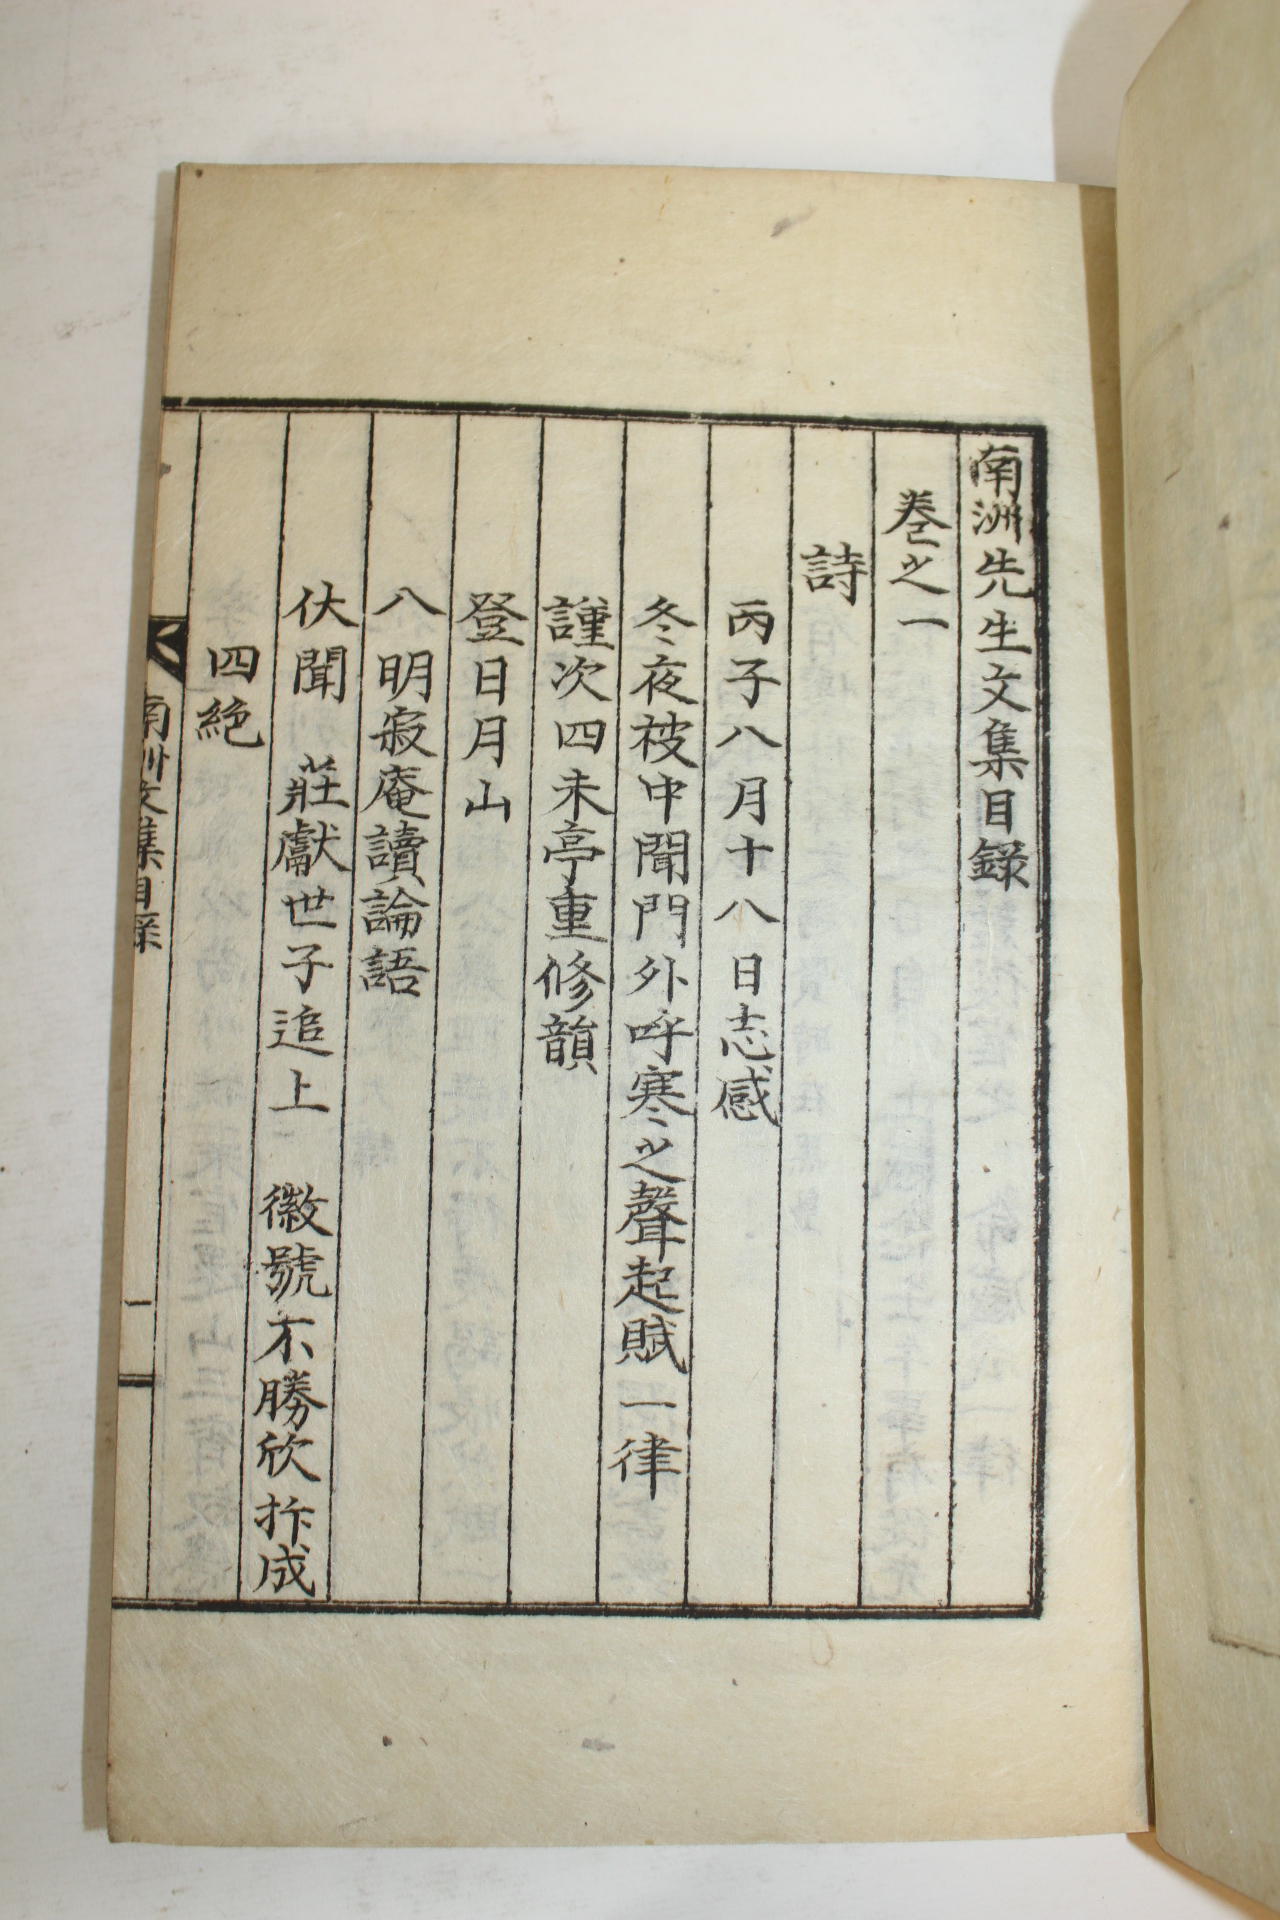 南洲先生文集目録
卷之一
詩
丙子八月十八日志感
冬夜被中聞門外呼寒之聲起賦一律
謹次四未亭重修韻
登日月山
八明寂庵讀論語
伏聞 莊獻世子追上 徽號不勝欣抃成
四絶
南洲文集目錄 一